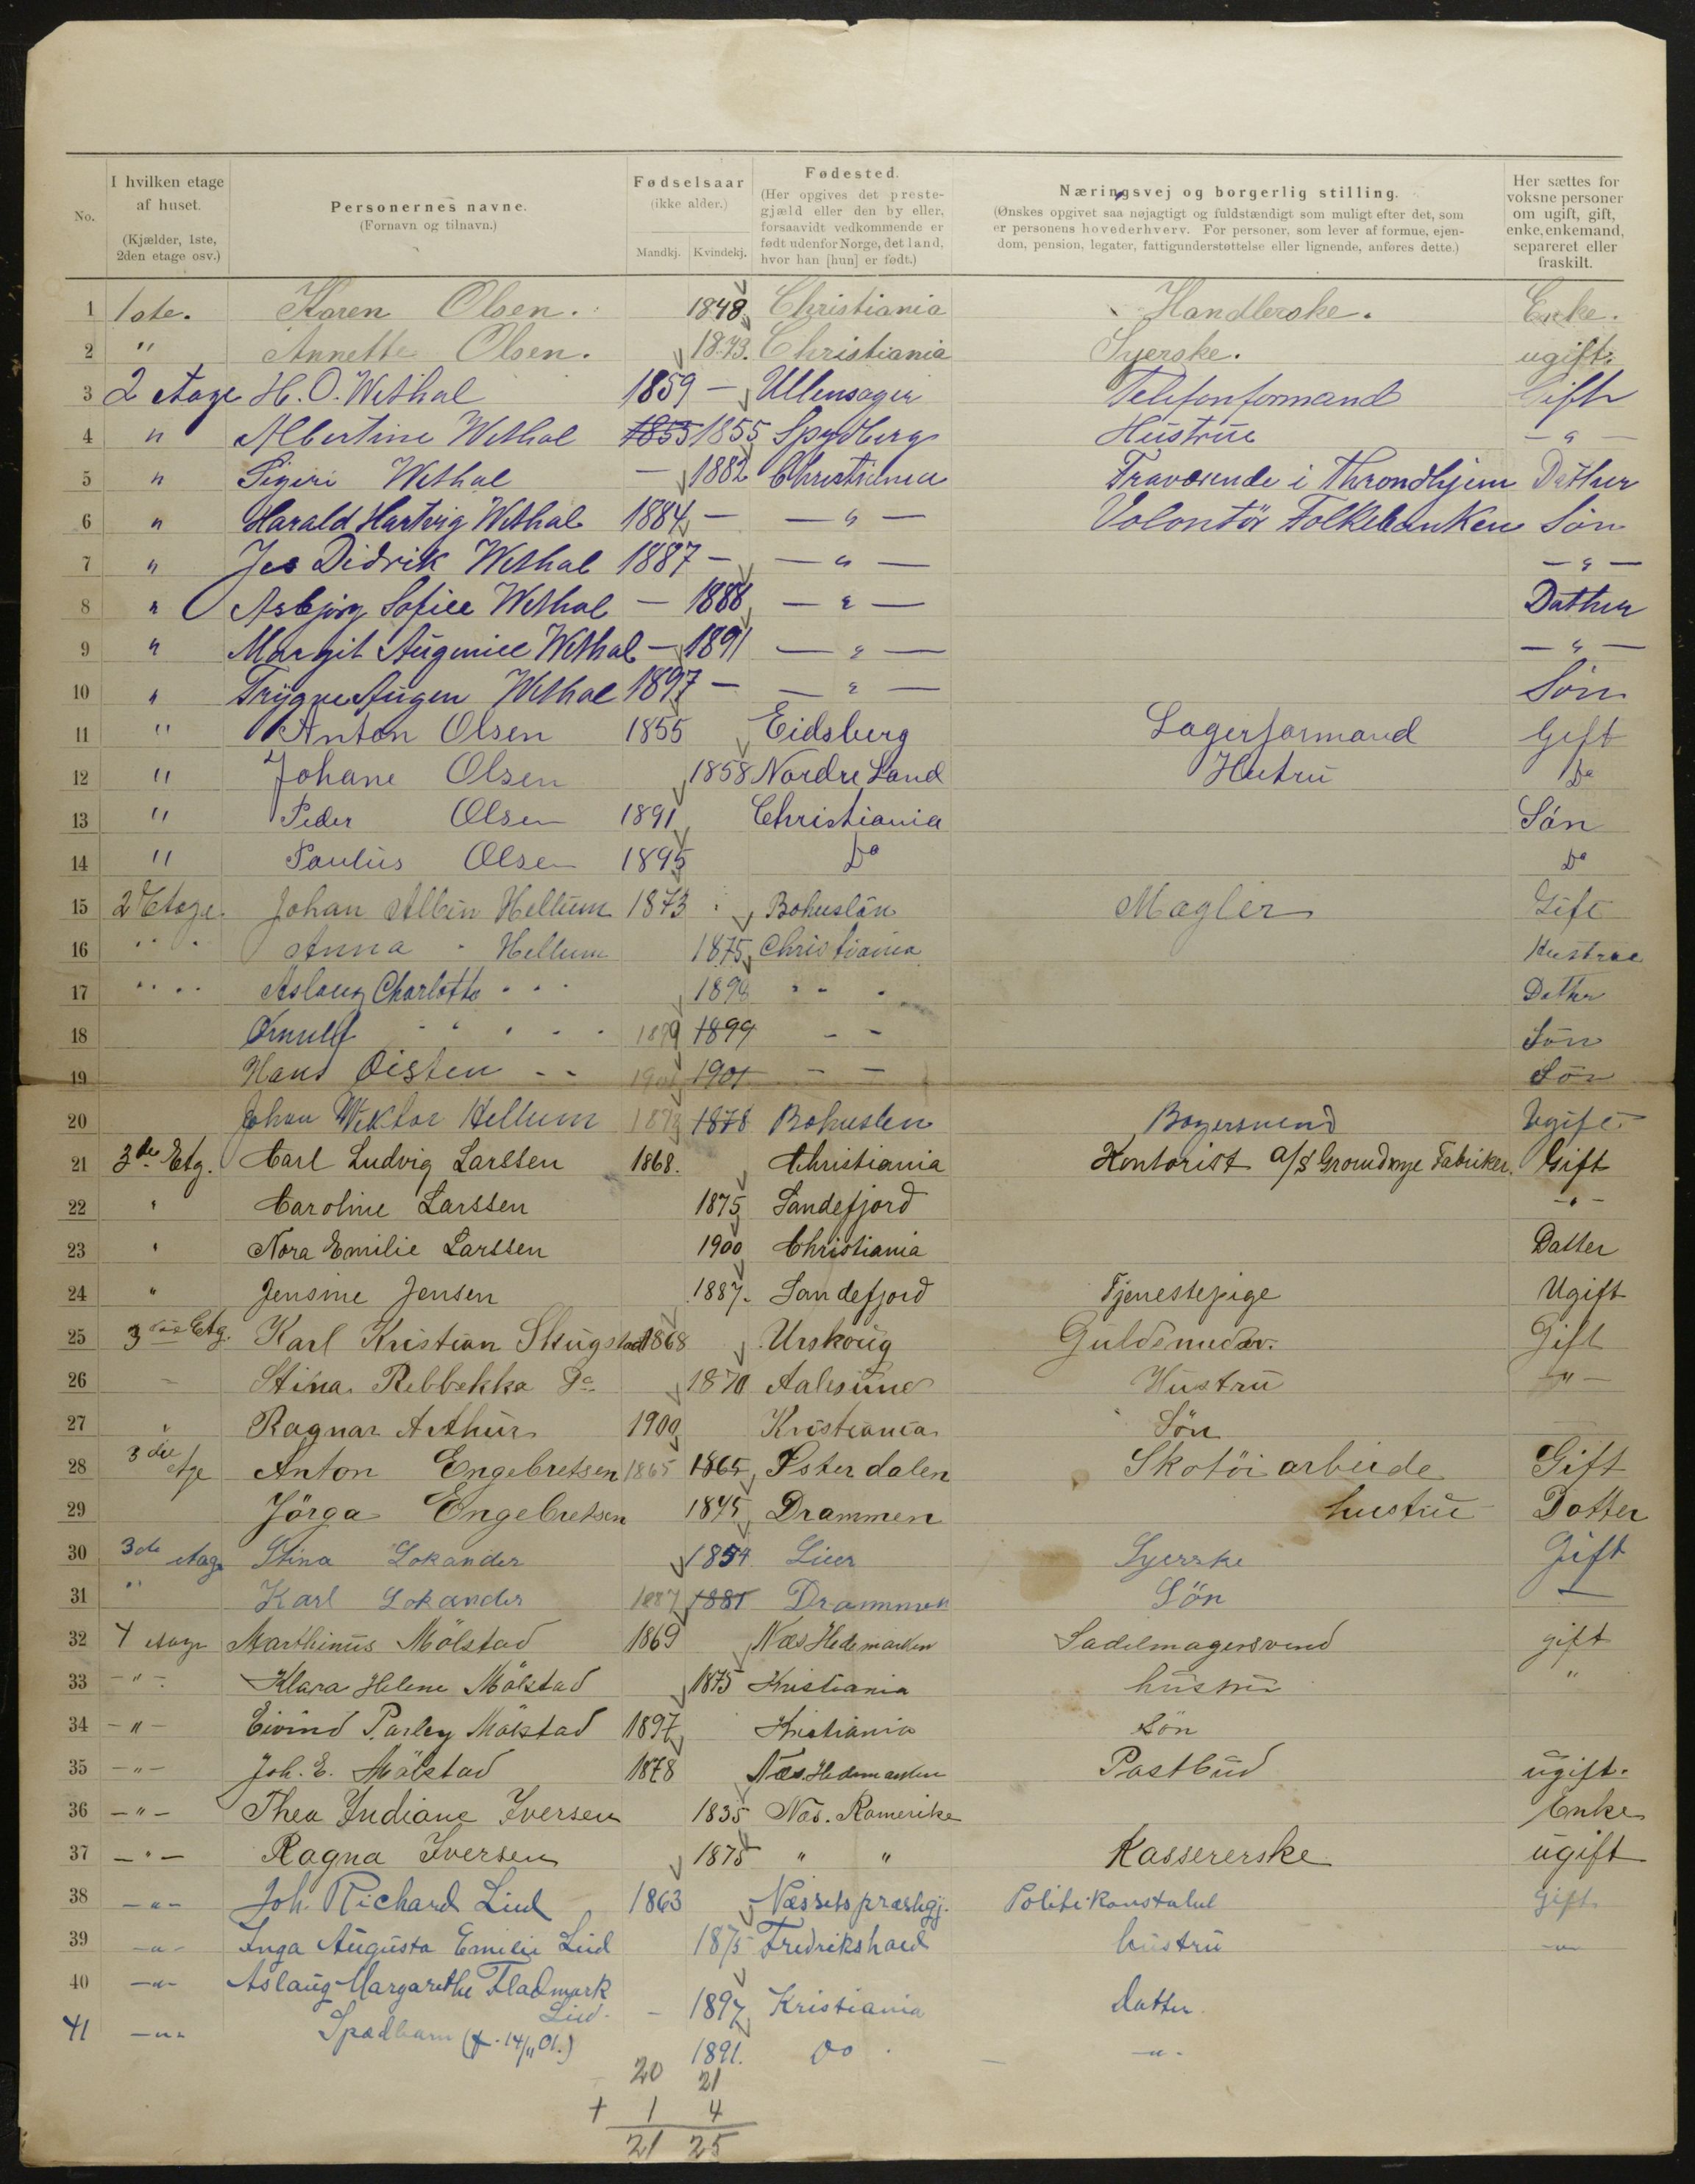 No.
I hvilken etage af huset.
(Kjælder, 1ste, 2den etage osv.)
Personernes navne.
(Fornavn og tilnavn.)
Fødselsaar
(ikke alder.)
Mandkj. Kvindekj.
Fødested.
(Her opgives det prestegjæld eller den by eller, forsaavidt vedkommende er født udenfor Norge, det land, hvor han [hun] er født.)
Næringsvej og borgerlig stilling.
(Ønskes opgivet saa nøjagtigt og fuldstændigt som muligt efter det, som er personens hovederhverv. For personer, som lever af formue, ejendom, pension, legater, fattigunderstøttelse eller lignende, anføres dette.)
Her sættes for voksne personer om ugift, gift, enke, enkemand, separeret eller fraskilt.
1 1ste. Karen Olsen. 1848 Christiania Handlerske. Enke.
2 " Annette Olsen. 1843. Christiania Syerske. ugift.
3 2 Etage H. O. Wethal 1859 — Ullensager Telefonformand Gift
4 " Albertine Wethal 1855 1855 Spydberg Hustrue — " —
5 " Sigiri Wethal — 1882 Christiania Fraværende i Throndhjem Datter
6 " Harald Hartvig Wethal 1884 — — " — Volontör Folkebanken Sön
7 " Jes Didrik Wethal 1887 — — " — — " —
8 " Asbjörg Sofiee Wethal — 1888 — " — Datter
9 " Margit Augeniee Wethal — 1891 — " — — " —
10 " Trygve Augen Wethal 1897 — — " — Sön
11 " Anton Olsen 1855 Eidsberg Lagerformand Gift
12 " Johane Olsen 1858 Nordre Land Hutru Do
13 " Peder Olsen 1891 Christiania Sön
14 " Paulus Olsen 1895 Do Do
15 2 Etage. Johan Albin Hellum 1873 Bohuslän Magler Gift
16 " " Anna " Hellum 1875 Christiania Hustrue
17 " " Aslaug Charlotte " " 1898 " " Datter
18 Ørnulf " " " 1899 1899 - - Sön
19 Hans Oisten - - 1901 1901 - - Sön
20 Johan Wektor Hellum 1878 1878 Bohuslen Bagersvend Ugift
21 3de Etg. Carl Ludvig Larssen 1868. Christiania Kontorist A/S Fabriker. Gift
22 " Caroline Larssen 1875 Sandefjord - " -
23 " Nora Emilie Larssen 1900 Christiania Datter
24 " Jensine Jensen 1887. Sandefjord Tjenestepige Ugift
25 3die Etg. Karl Kristian Skugstad 1868 Urskoug Guldsmedsv. Gift
26 - Stina Rebbekka Do 1870 Aalesund Hustru - " -
27 " Ragnar Arthur 1900 Kristiania Sön
28 3die etge Anton Engebretsen 1865 1865 Østerdalen Skotöiarbeide Gift
29 Jörga Engebretsen 1845 Drammen hustru Dotter
30 3de etage Stina Lokander 1854 Lier Syerske Gift
31 " Karl Lokander 1887 1881 Drammen Sön —
32 4 etage Marthinus Mölstad 1869 Næs Hedemarken Sadelmagersvend gift
33 - " - Klara Helene Mölstad 1875 Kristiania hustru "
34 - " - Eivind Parley Mölstad 1897 Kristiania Sön
35 - " - Joh. E. Mölstad 1878 Næs. Hedemarken Postbud ugift.
36 - " - Thea Indiane Iversen 1835 Næs. Romerike Enke
37 - " - Ragna Iversen 1875 " " Kassererske ugift
38 - " - Joh. Richard Lied 1863 Næssets præstegj. Politikonstabel Gift
39 - " - Inga Augusta Emilie Lied 1875 Fredrikshald hustru - " -
40 - " - Aslaug Margarethe Fladmark
Lied. — 1897 Kristiania Datter.
41 - " - Spædbarn (f. 14/11 01.) 1891. Do. — - " -
20 21
+ 1 4
21 25